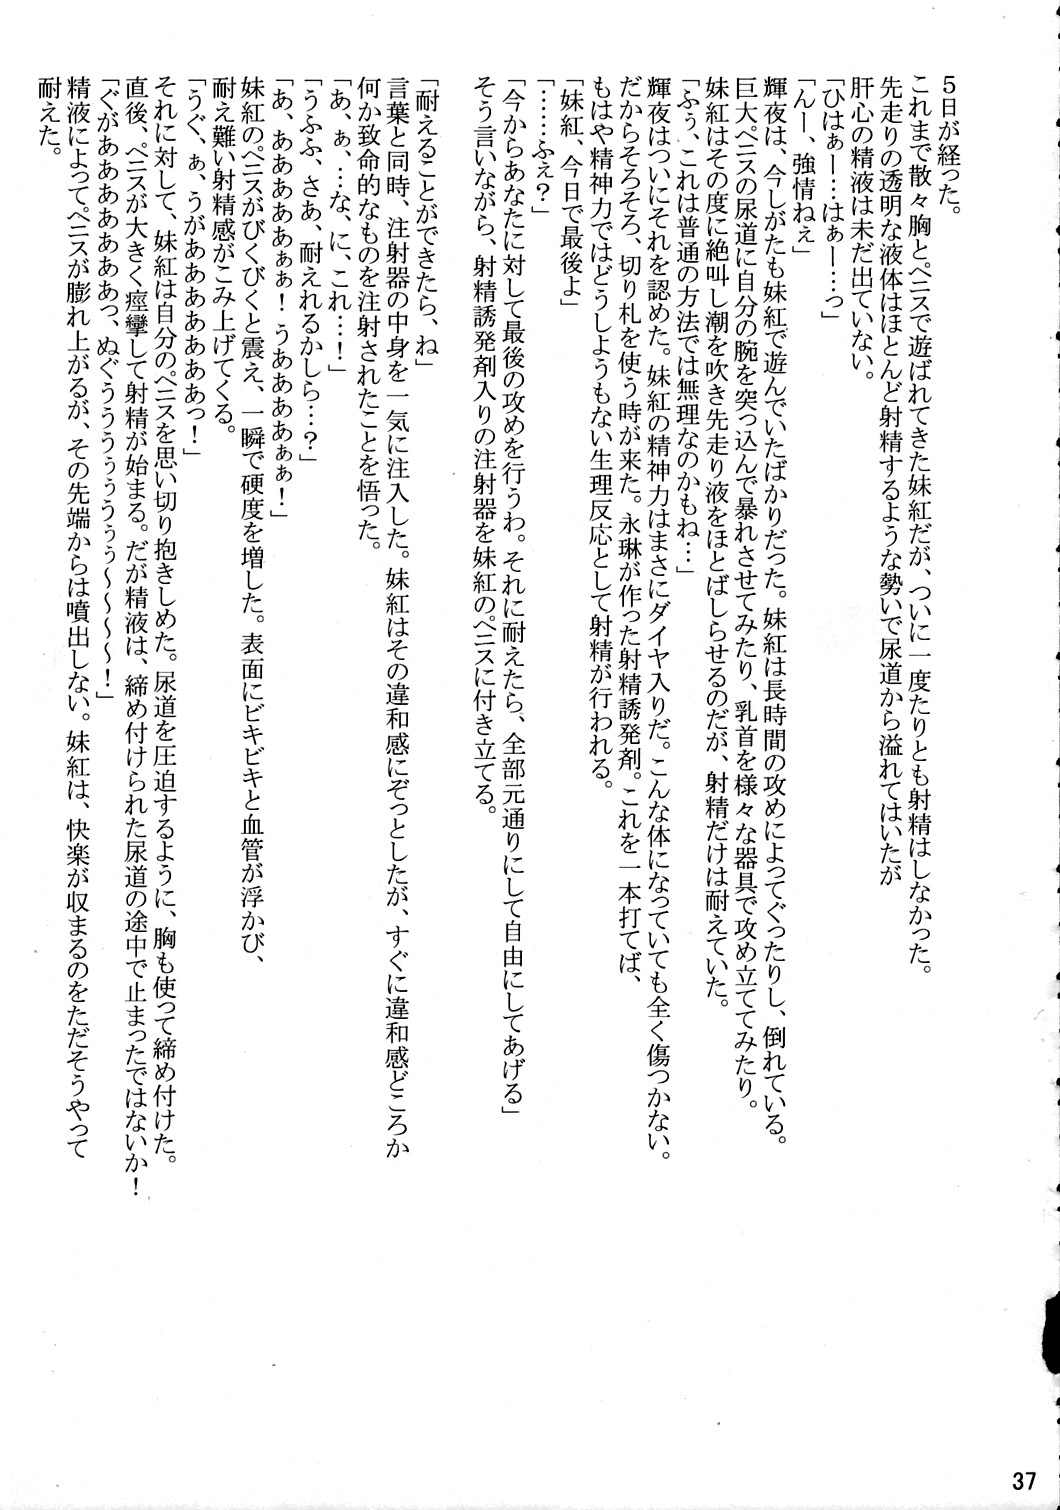 5日が経った。
これまで散々胸とペニスで遊ばれてきた妹紅だが、ついに一度たりとも射精はしなかった。
先走りの透明な液体はほとんど射精するような勢いで尿道から溢れてはいたが
肝心の精液は未だ出ていない。
「ひはぁー…はぁー…っ」
「んー、強情ねぇ」
輝夜は、今しがたも妹紅で遊んでいたばかりだった。妹紅は長時間の攻めによってぐったりし、倒れている。
巨大ペニスの尿道に自分の腕を突っ込んで暴れさせてみたり、乳首を様々な器具で攻め立ててみたり。
妹紅はその度に絶叫し潮を吹き先走り液をほとばしらせるのだが、射精だけは耐えていた。
「ふぅ、これは普通の方法では無理なのかもね…」
輝夜はついにそれを認めた。妹紅の精神力はまさにダイヤ入りだ。こんな体になっていても全く傷つかない。
だからそろそろ、切り札を使う時が来た。永琳が作った射精誘発剤。これを一本打てば、
もはや精神力ではどうしようもない生理反応として射精が行われる。
「妹紅、今日で最後よ」
「……ふぇ？」
「今からあなたに対して最後の攻めを行うわ。それに耐えたら、全部元通りにして自由にしてあげる」
そう言いながら、射精誘発剤入りの注射器を妹紅のペニスに付き立てる。
「耐えることができたら、ね」
言葉と同時、注射器の中身を一気に注入した。妹紅はその違和感にぞっとしたが、すぐに違和感どころか
何か致命的なものを注射されたことを悟った。
「あ、ぁ、…な、に、これ…！」
「うふふ、さあ、耐えれるかしら…？」
「あ、ああああああぁぁ！うああああぁぁ！」
妹紅のペニスがびくびくと震え、一瞬で硬度を増した。表面にビキビキと血管が浮かび、
耐え難い射精感がこみ上げてくる。
「うぐ、ぁ、うがああああああああっ！」
それに対して、妹紅は自分のペニスを思い切り抱きしめた。尿道を圧迫するように、胸も使って締め付けた。
直後、ペニスが大きく痙攣して射精が始まる。だが精液は、締め付けられた尿道の途中で止まったではないか！
「ぐがああああああああっ、ぬぐうううぅぅうぅぅ～～～～！」
精液によってペニスが膨れ上がるが、その先端からは噴出しない。妹紅は、快楽が収まるのをただそうやって
耐えた。
37